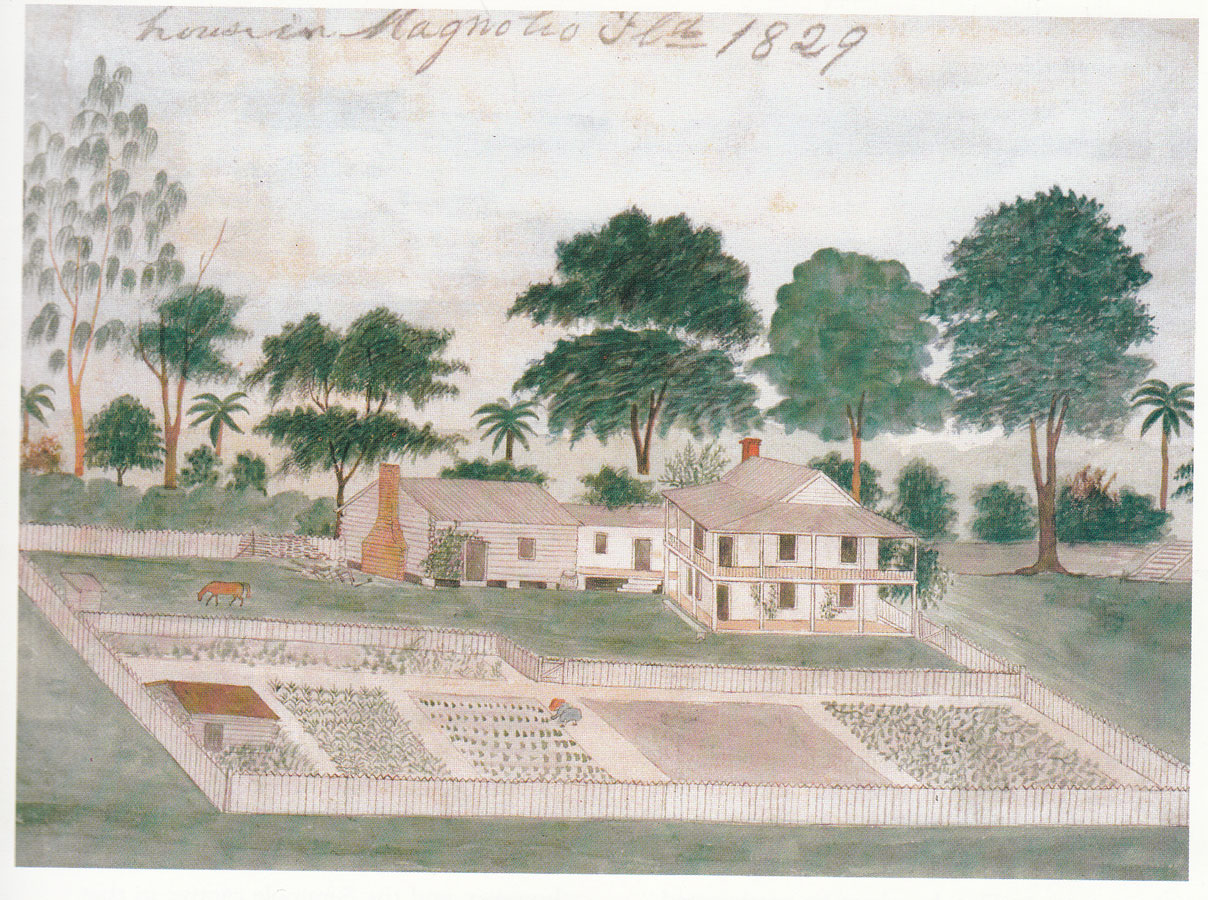 house in Magnolia Fld 1829